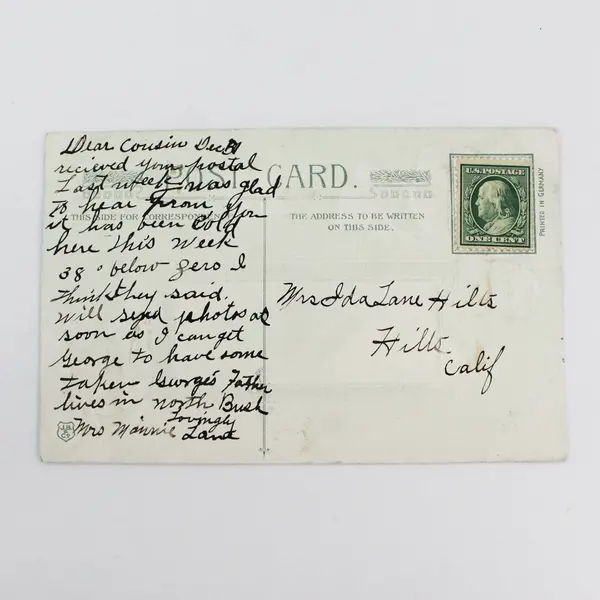 Dear Cousin Dec 31
recieved your postal
Last week I was glad
to hear From you
it has been Cold
here this week
38° below zero I
think they said.
will send photos as
soon as I can get
George to have some
taken George's Father
lives in north Bush
Lovingly
Mrs Mannie Lane
POST CARD.
THIS SIDE FOR CORRESPONDENCE
THE ADDRESS TO BE WRITTEN
ON THIS SIDE.
U.S. POSTAGE
ONE CENT
PRINTED IN GERMANY
Mrs Ida Lane Hills
Hills
Calif